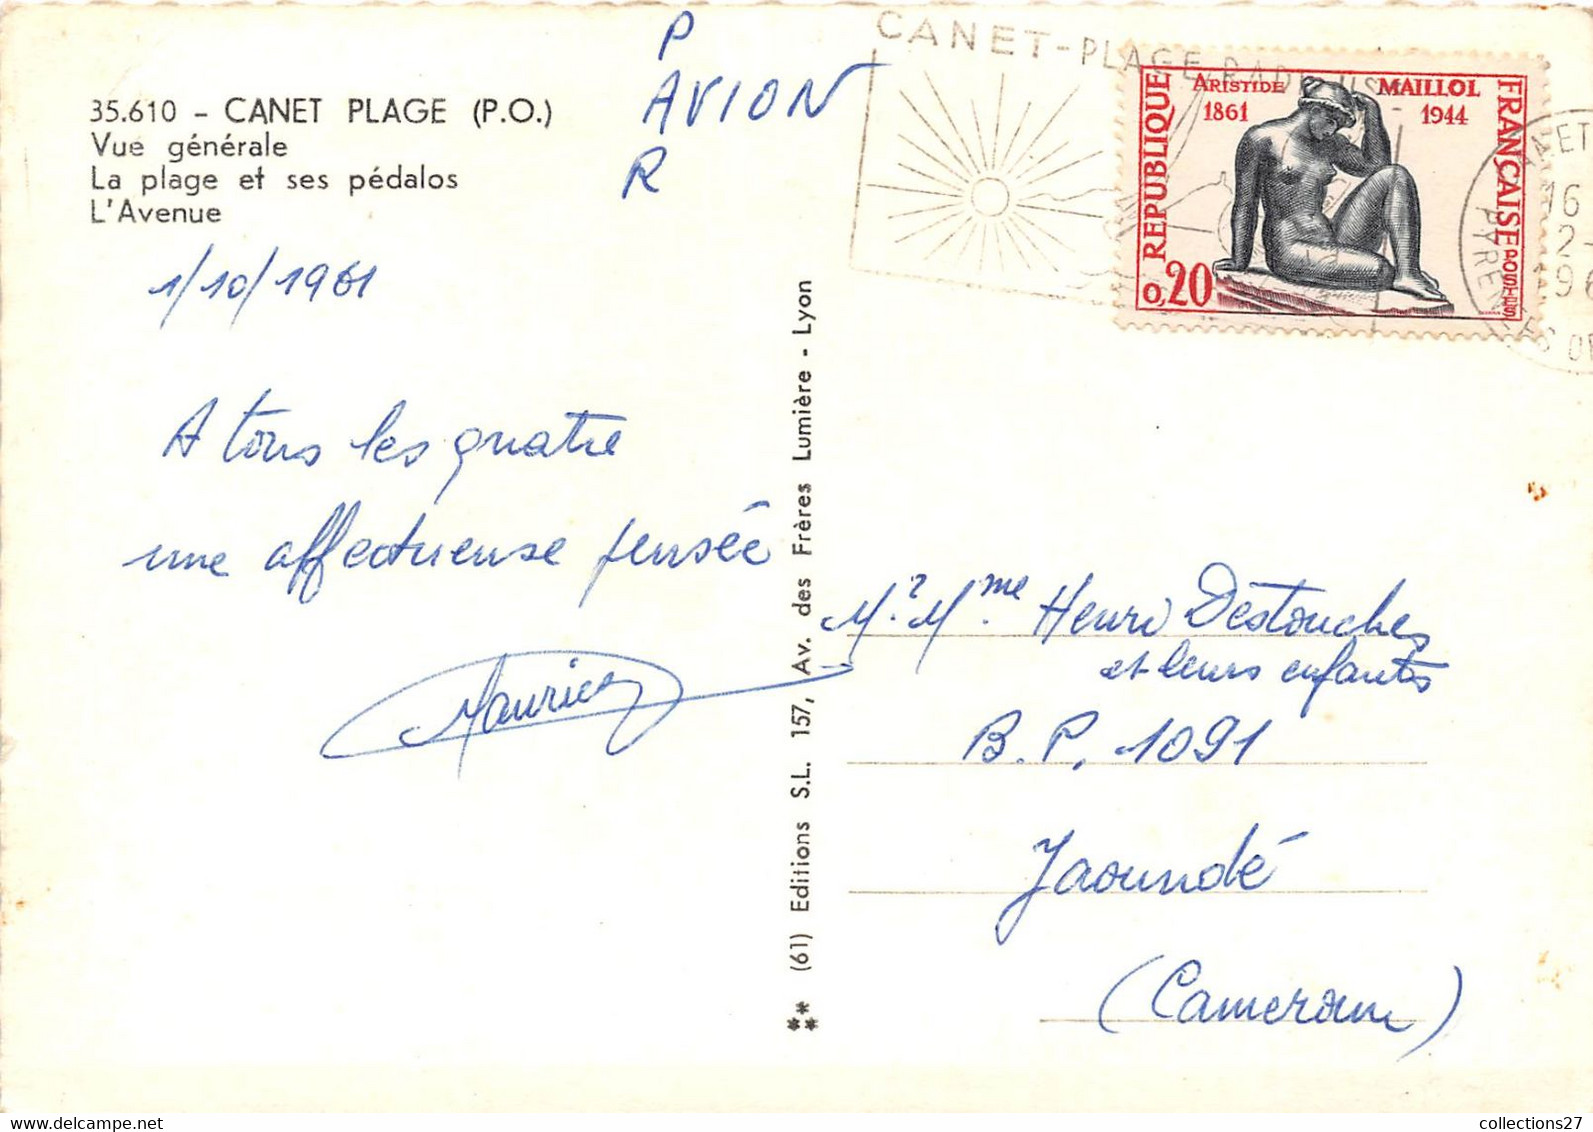 35.610 - CANET PLAGE (P.O.)
Vue générale
La plage et ses pédalos
L'Avenue
P
AVION
R
CANET-PLAGE
ARISTIDE MAILLOL
1861 1944
REPUBLIQUE
FRANÇAISE
POSTES
0,20
16
2-
196
1/10/1961
A tous les quatre
une affectueuse pensée
Maurice
(61) Editions S.L. 157, Av. des Frères Lumière - Lyon
Mr. Mme. Henri Destouches
et leurs enfants
B.P. 1091
Yaoundé
(Cameroun)
collections27